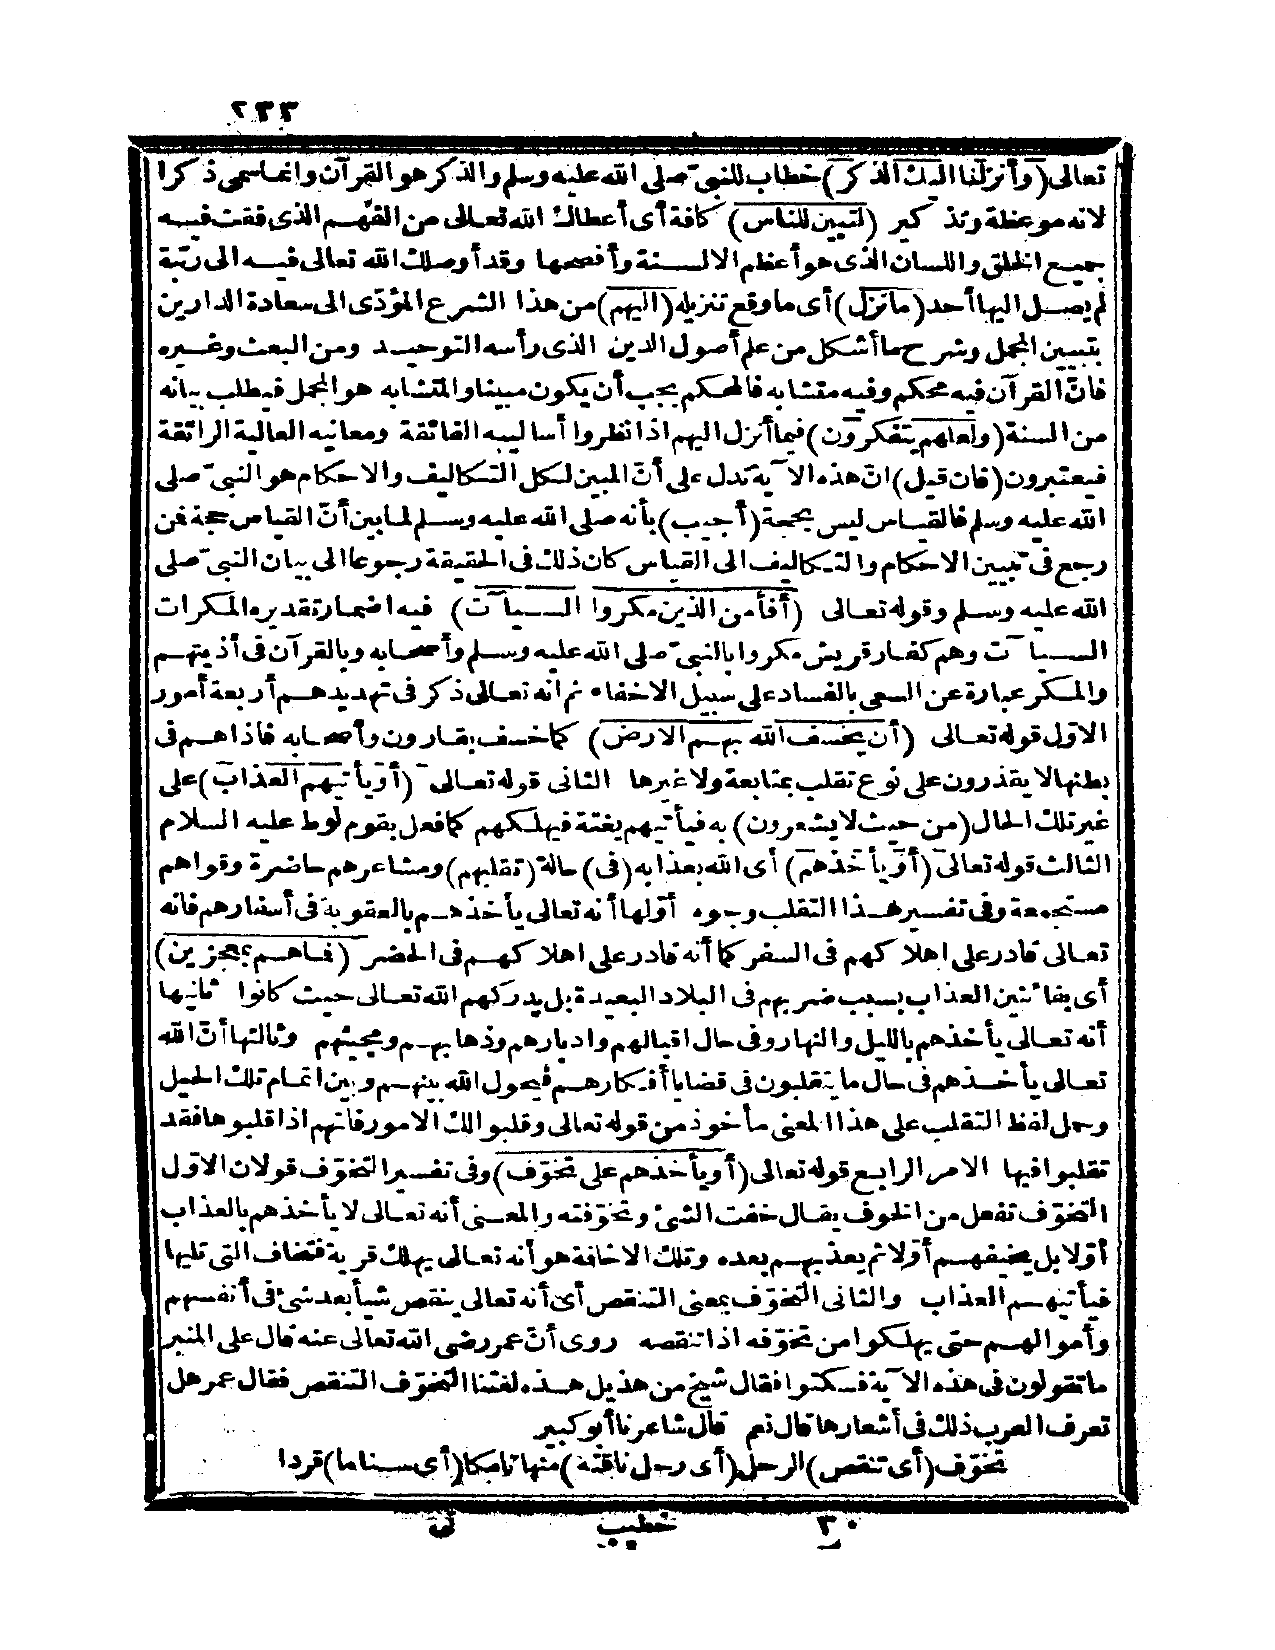 ٢٣٣
تعالى (وأنزلنا اليك الذكر) خطاب للنبىّ صلى الله عليه وسلم والذكر هو القرآن وانما سمى ذكرا
لانه موعظة وتذكير (لتبين للناس) كافة أى أعطاك الله تعالى من الفهم الذى فقت فيه
جميع الخلق واللسان الذى هو أعظم الالسنة وأفصحها وقد أوصلك الله تعالى فيه الى رتبة
لم يصل اليها أحد (ما نزل) أى ما وقع تنزيله (اليهم) من هذا الشرع المؤدّى الى سعادة الدارين
بتبيين المجمل وشرح ما أشكل من علم أصول الدين الذى رأسه التوحيد ومن البعث وغيره
فانّ القرآن فيه محكم وفيه متشابه فالمحكم يجب أن يكون مبينا والمتشابه هو المجمل فيطلب بيانه
من السنة (ولعلهم يتفكرون) فيما أنزل اليهم اذا نظروا أساليبه الفائقة ومعانيه العالية الرائقة
فيعتبرون (فان قيل) انّ هذه الآية تدل على أنّ المبين لكل التكاليف والاحكام هو النبىّ صلى
الله عليه وسلم فالقياس ليس بحجة (أجيب) بأنه صلى الله عليه وسلم لما بين أنّ القياس حجة فمن
رجع فى تبيين الاحكام والتكاليف الى القياس كان ذلك فى الحقيقة رجوعا الى بيان النبىّ صلى
الله عليه وسلم وقوله تعالى (أفأمن الذين مكروا السيآت) فيه اضمار تقديره المكرات
السيآت وهم كفار قريش مكروا بالنبىّ صلى الله عليه وسلم وأصحابه وبالقرآن فى أذيتهم
والمكر عبارة عن السعى بالفساد على سبيل الاخفاء ثم انه تعالى ذكر فى تهديدهم أربعة أمور
الاوّل قوله تعالى (أن يخسف الله بهم الارض) كما خسف بقارون وأصحابه فاذا هم فى
بطنها لا يقدرون على نوع تقلب بمتابعة ولا غيرها الثانى قوله تعالى (أو يأتيهم العذاب) على
غير تلك الحال (من حيث لا يشعرون) به فيأتيهم بغتة فيهلكهم كما فعل بقوم لوط عليه السلام
الثالث قوله تعالى (أو يأخذهم) أى الله بعذابه (فى) حالة (تقلبهم) ومشاعرهم حاضرة وقواهم
مستجمعة وفى تفسير هذا التقلب وجوه أوّلها أنه تعالى يأخذهم بالعقوبة فى أسفارهم فانه
تعالى قادر على اهلاكهم فى السفر كما أنه قادر على اهلاكهم فى الحضر (فما هم بمعجزين)
أى بفائتين العذاب بسبب ضربهم فى البلاد البعيدة بل يدركهم الله تعالى حيث كانوا ثانيها
أنه تعالى يأخذهم بالليل والنهار وفى حال اقبالهم وادبارهم وذهابهم ومجيئهم وثالثها أنّ الله
تعالى يأخذهم فى حال ما يتقلبون فى قضايا أفكارهم فيحول الله بينهم وبين اتمام تلك الحيل
وحمل لفظ التقلب على هذا المعنى مأخوذ من قوله تعالى وقلبوا لك الامور فانهم اذا قلبوها فقد
تقلبوا فيها الامر الرابع قوله تعالى (أو يأخذهم على تخوّف) وفى تفسير التخوّف قولان الاوّل
التخوّف تفعل من الخوف يقال خفت الشئ وتخوّفته والمعنى أنه تعالى لا يأخذهم بالعذاب
أوّلا بل يخيفهم أوّلا ثم يعذبهم بعده وتلك الاخافة هو أنه تعالى يهلك قرية فتخاف التى تليها
فيأتيهم العذاب والثانى التخوّف بمعنى التنقص أى أنه تعالى ينقص شيأ بعد شئ فى أنفسهم
وأموالهم حتى يهلكوا من تخوّفه اذا تنقصه روى أنّ عمر رضى الله تعالى عنه قال على المنبر
ما تقولون فى هذه الآية فسكتوا فقال شيخ من هذيل هذه لغتنا التخوّف التنقص فقال عمر هل
تعرف العرب ذلك فى أشعارها قال نعم قال شاعرنا أبو كبير
تخوّف (أى تنقص) الرحل (أى رحل ناقته) منها تامكا (أى سناما) قردا
٣٠ خطيب نى